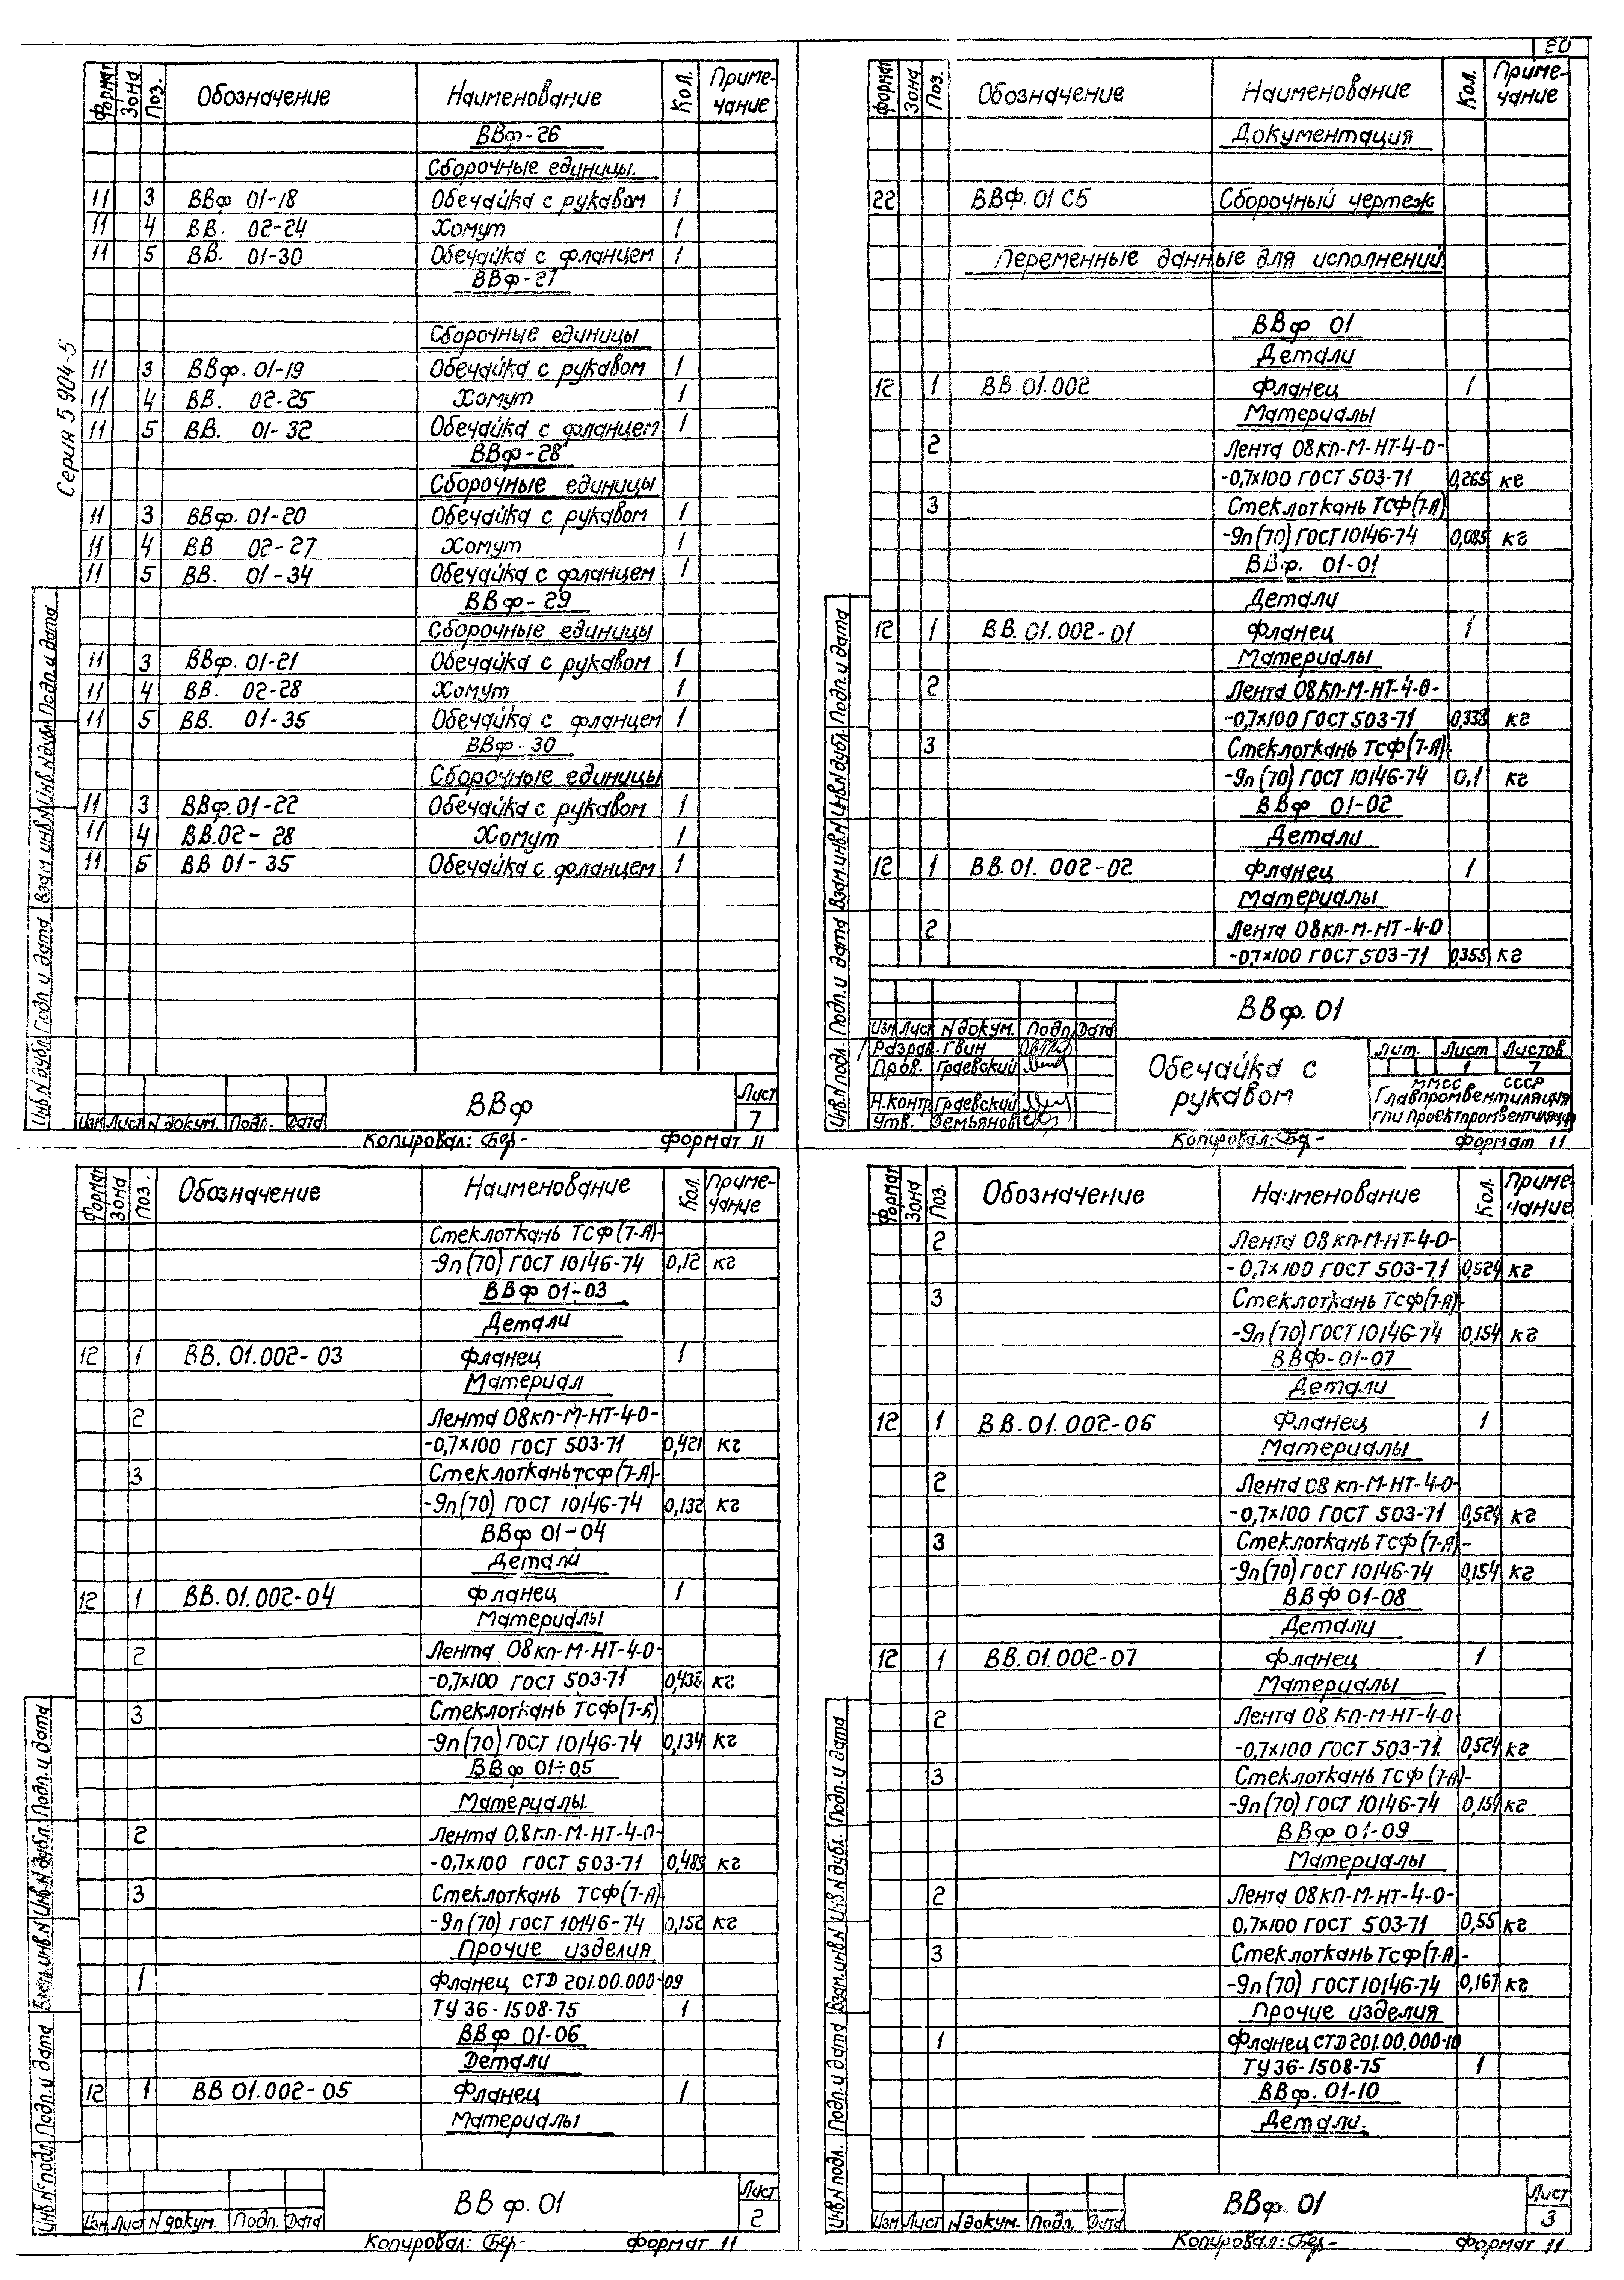 20
Серия 5 904-5
Формат Зона Поз. Обозначение Наименование Кол. Приме-чание
ВВф-26
Сборочные единицы.
11 3 ВВф 01-18 Обечайка с рукавом 1
11 4 ВВ. 02-24 Хомут 1
11 5 ВВ. 01-30 Обечайка с фланцем 1
ВВф-27
Сборочные единицы
11 3 ВВф. 01-19 Обечайка с рукавом 1
11 4 ВВ. 02-25 Хомут 1
11 5 ВВ. 01-32 Обечайка с фланцем 1
ВВф-28
Сборочные единицы
11 3 ВВф. 01-20 Обечайка с рукавом 1
11 4 ВВ 02-27 Хомут 1
11 5 ВВ. 01-34 Обечайка с фланцем 1
ВВф-29
Сборочные единицы
11 3 ВВф. 01-21 Обечайка с рукавом 1
11 4 ВВ. 02-28 Хомут 1
11 5 ВВ. 01-35 Обечайка с фланцем 1
ВВф-30
Сборочные единицы
11 3 ВВф.01-22 Обечайка с рукавом 1
11 4 ВВ.02-28 Хомут 1
11 5 ВВ 01-35 Обечайка с фланцем 1
Инв N дубл. Подп. и дата Взам инв. N Инв N дубл. Подп. и дата
Изм Лист N докум. Подп. Дата
ВВф
Лист
7
Копировал: Бер- Формат 11
Формат Зона Поз. Обозначение Наименование Кол. Приме-чание
Документация
22 ВВФ. 01 СБ Сборочный чертеж
Переменные данные для исполнений
ВВф 01
Детали
12 1 ВВ.01.002 Фланец 1
Материалы
2 Лента 08кп-М-НТ-4-0-
-0,7х100 ГОСТ 503-71 0,265 кг
3 Стеклоткань ТСФ(7-А)
-9п(70) ГОСТ 10146-74 0,085 кг
ВВф. 01-01
Детали
12 1 ВВ.01.002-01 Фланец 1
Материалы
2 Лента 08кп-М-НТ-4-0-
-0,7х100 ГОСТ 503-71 0,338 кг
3 Стеклоткань ТСФ(7-А)-
-9п(70) ГОСТ 10146-74 0,1 кг
ВВф 01-02
Детали
12 1 ВВ.01. 002-02 Фланец 1
Материалы
2 Лента 08кп-М-НТ-4-0
-0,7х100 ГОСТ 503-71 0,355 кг
Инв.N подл. Подп. и дата Взам.инв.N Инв.N дубл. Подп. и дата
Изм Лист N докум. Подп. Дата
Разраб. Гвин
Пров. Граевский
Н.контр. Граевский
Утв. Демьянов
ВВф. 01
Обечайка с
рукавом
Лит. Лист Листов
1 7
ММСС СССР
Главпромвентиляция
ГПИ Проектпромвентиляция
Копировал: Бер- Формат 11
Формат Зона Поз. Обозначение Наименование Кол. Приме-чание
Стеклоткань ТСФ(7-А)-
-9п(70) ГОСТ 10146-74 0,12 кг
ВВф 01-03
Детали
12 1 ВВ. 01.002-03 Фланец 1
Материал
2 Лента 08кп-М-НТ-4-0-
-0,7х100 ГОСТ 503-71 0,421 кг
3 Стеклоткань ТСФ(7-А)-
-9п(70) ГОСТ 10146-74 0,132 кг
ВВф 01-04
Детали
12 1 ВВ. 01.002-04 Фланец 1
Материалы
2 Лента 08кп-М-НТ-4-0-
-0,7х100 ГОСТ 503-71 0,438 кг
3 Стеклоткань ТСФ(7-А)
-9п(70) ГОСТ 10146-74 0,134 кг
ВВф 01-05
Материалы.
2 Лента 0,8кп-М-НТ-4-0-
-0,7х100 ГОСТ 503-71 0,489 кг
3 Стеклоткань ТСФ(7-А)
-9п(70) ГОСТ 10146-74 0,152 кг
Прочие изделия
1 Фланец СТД 201.00.000-09
ТУ 36-1508-75 1
ВВф 01-06
Детали
12 1 ВВ 01.002-05 Фланец 1
Материалы
Инв.N подл. Подп. и дата Взам. инв.N Инв.N дубл. Подп. и дата
Изм Лист N докум. Подп. Дата
ВВф.01
Лист
2
Копировал: Бер- Формат 11
Формат Зона Поз. Обозначение Наименование Кол. Приме-чание
2 Лента 08кп-М-НТ-4-0-
-0,7х100 ГОСТ 503-71 0,524 кг
3 Стеклоткань ТСФ(7-А)-
-9п(70) ГОСТ 10146-74 0,154 кг
ВВф-01-07
Детали
12 1 ВВ.01.002-06 Фланец 1
Материалы
2 Лента 08 кп-М-НТ-4-0-
-0,7х100 ГОСТ 503-71 0,524 кг
3 Стеклоткань ТСФ(7-А)-
-9п(70) ГОСТ 10146-74 0,154 кг
ВВФ 01-08
Детали
12 1 ВВ.01.002-07 Фланец 1
Материалы
2 Лента 08 кп-М-НТ-4-0
-0,7х100 ГОСТ 503-71. 0,524 кг
3 Стеклоткань ТСФ(7-А)-
-9п(70) ГОСТ 10146-74 0,154 кг
ВВф 01-09
Материалы
2 Лента 08кп-М-НТ-4-0-
0,7х100 ГОСТ 503-71 0,55 кг
3 Стеклоткань ТСФ(7-А)-
-9п(70) ГОСТ 10146-74 0,167 кг
Прочие изделия
1 Фланец СТД 201.00.000-10
ТУ 36-1508-75 1
ВВф. 01-10
Детали.
Инв.N подл. Подп. и дата Взам.инв.N Инв.N дубл. Подп. и дата
Изм Лист N докум. Подп. Дата
ВВф. 01
Лист
3
Копировал: Бер- Формат 11